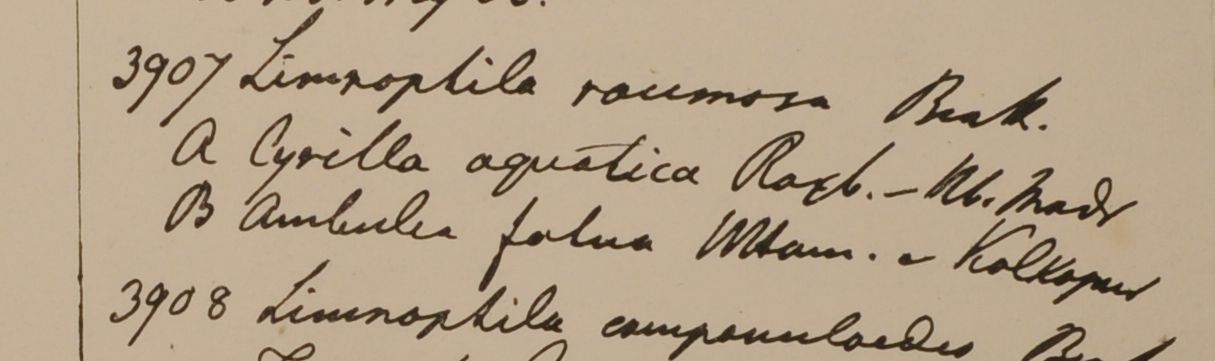 3907 Limnophila racemosa Benth.
A Cyrilla aquatica Roxb. – Hb. Madr
B Ambulia fatua Wtam. – Kolkapur
3908 Limnophila campanuloides Benth